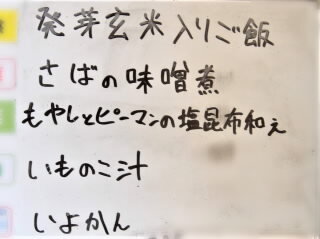 発芽玄米入りご飯
さばの味噌煮
もやしとピーマンの塩昆布和え
いものこ汁
いよかん